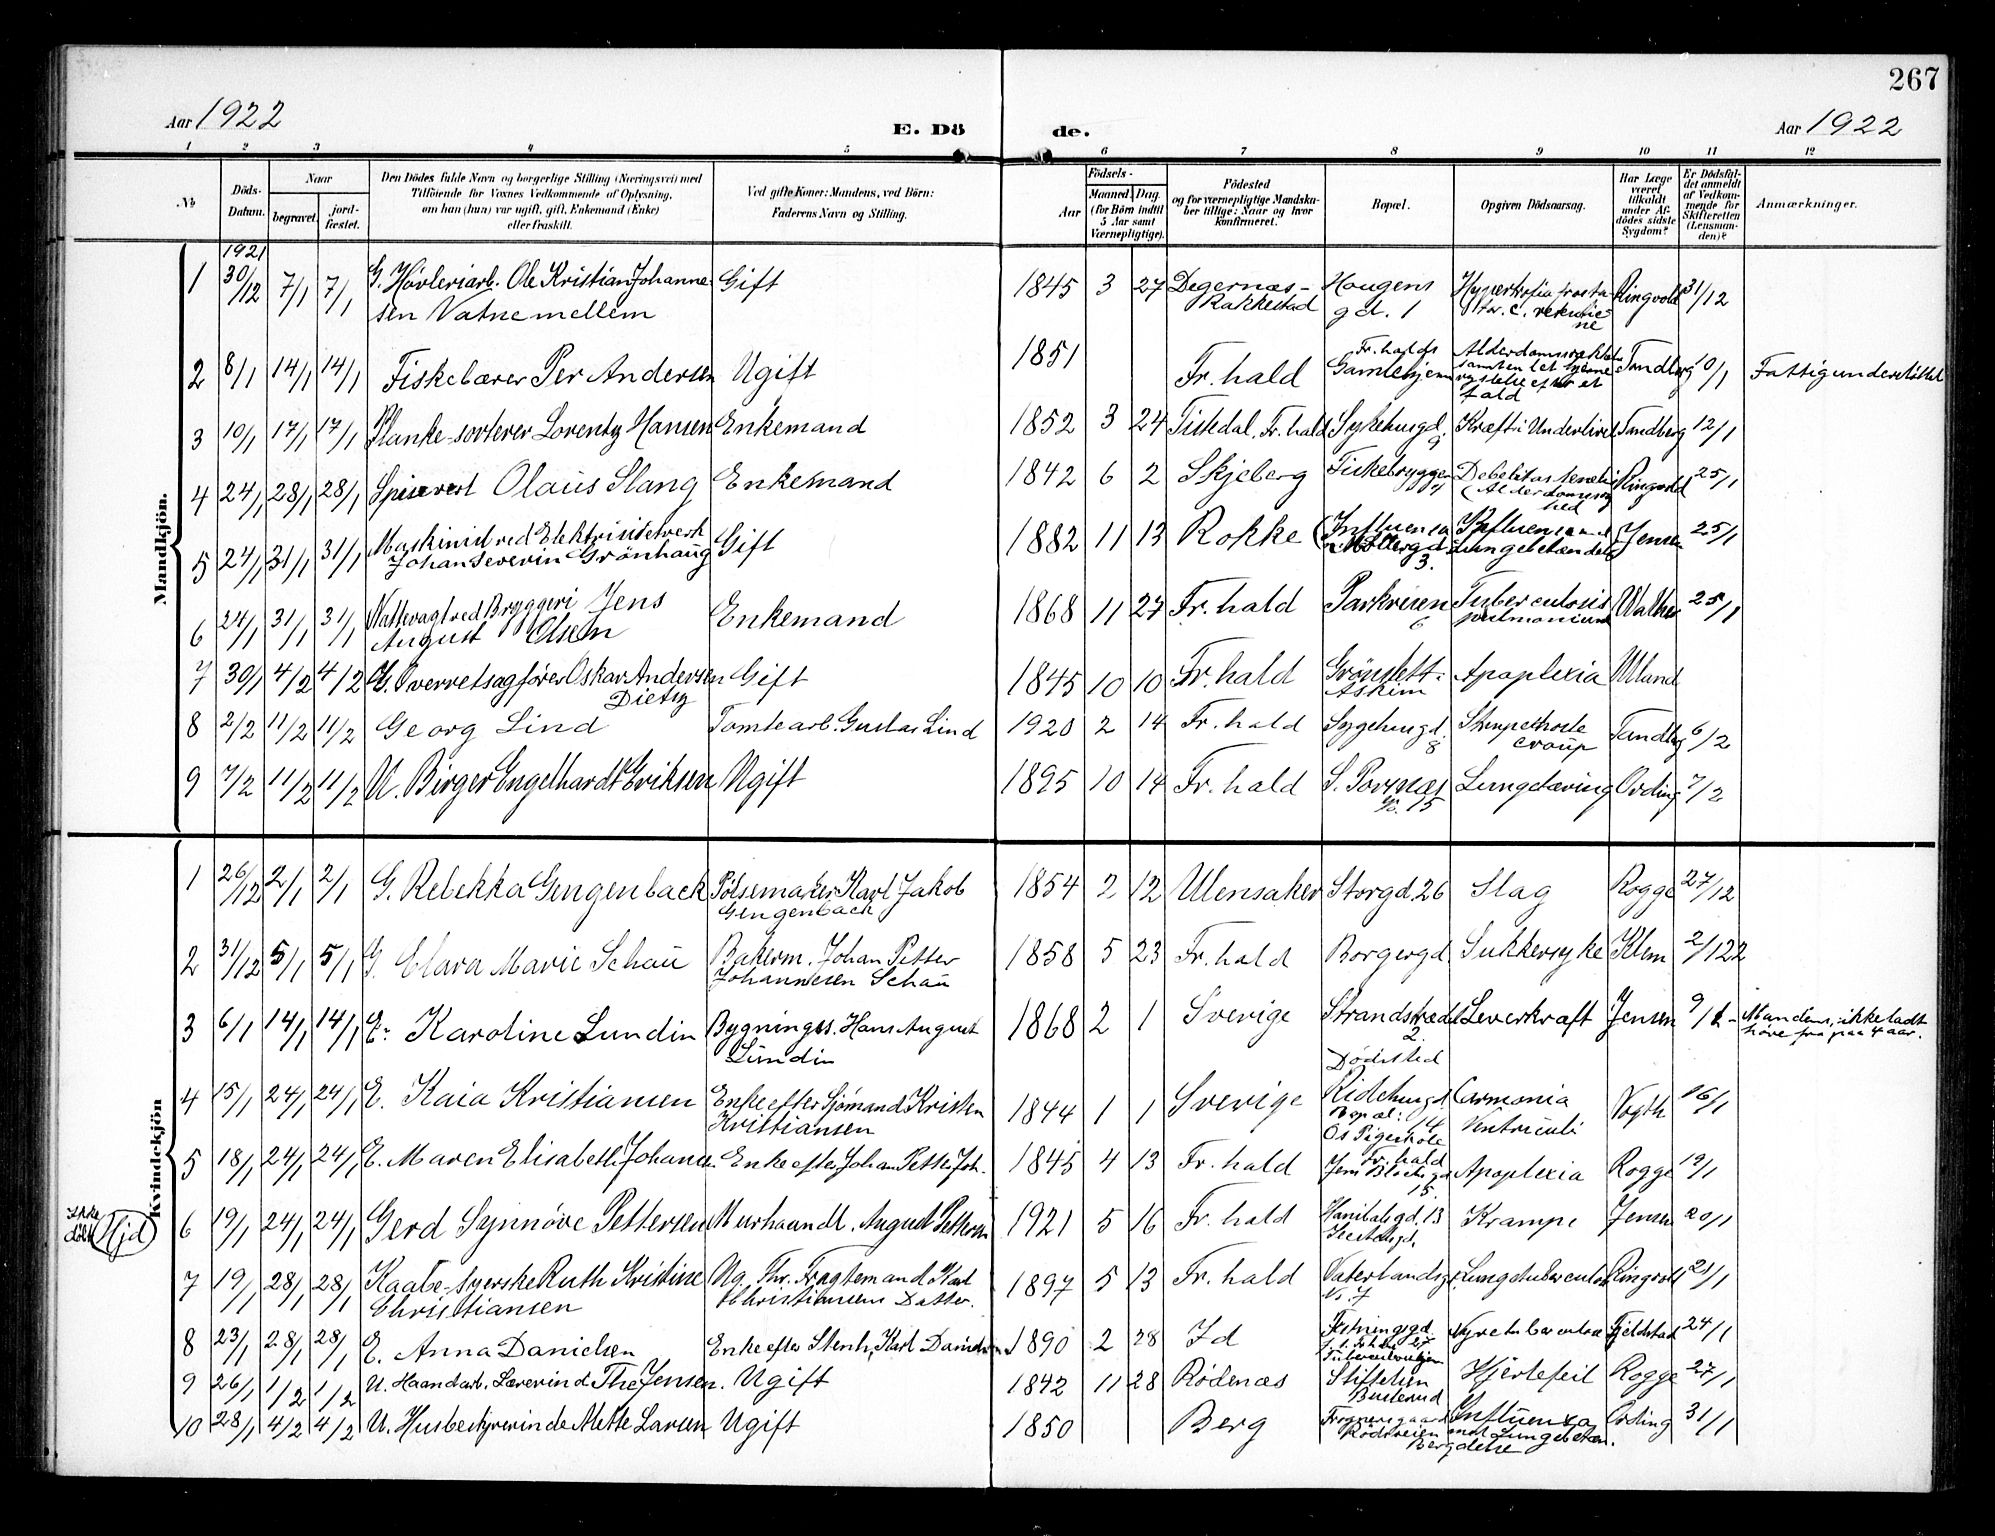 267
Aar 1922
E. Dö
de.
Aar 1922
1 2 3 4 5 6 7 8 9 10 11 12
№
Döds-Datum.
Naar
begravet. jord-fæstet.
Den Dödes fulde Navn og borgerlige Stilling (Næringsvei) med
Tilföiende for Voxnes Vedkommende af Oplysning,
om han (hun) var ugift, gift, Enkemand (Enke)
eller fraskilt.
Ved gifte Koner: Mandens, ved Börn:
Faderens Navn og Stilling.
Födsels-
Aar Maaned. Dag.
(for Börn indtil 5 Aar samt Værnepligtige).
Födested
og for værnepligtige Mandska-
ber tillige: Naar og hvor
konfirmeret.
Bopæl.
Opgiven Dödsaarsag.
Har Læge været tilkaldt under Af-dödes sidste Sygdom?
Er Dödsfal-det anmeldt af Vedkom-mende for Skifteretten (Lensman-den)?
Anmærkninger.
Mandkjön.
1921
1 30/12 7/1 7/1 G. Hövleriarb. Ole Kristian Johanne- Gift 1845 3 27 Degernæs- Haugens Ringvold 31/12
sen Vatnemellem Rakkestad gd. 1
2 8/1 14/1 14/1 Fiskebærer Per Andersen Ugift 1851 Fr.hald Fr.halds Gamlehjem fald Tandberg 10/1 Fattigunderstöttet
3 10/1 17/1 17/1 Planke-sorterer Lorentz Hansen Enkemand 1852 3 24 Tistedal, Fr.hald Sykehusgd. 9 Kræft i Underlivet Tandberg 12/1
4 24/1 28/1 28/1 Spisevert Olaus Slang Enkemand 1842 6 2 Skjeberg Fiskebryggen Ringvold 25/1
5 24/1 31/1 31/1 Maskinist ved Elektrisitetverk Gift 1882 11 13 Rokke Influensa m. Lungebetændelse Jensen 25/1
Johan Severin Grönhaug 3.
6 24/1 31/1 31/1 Nattevagt ved Bryggeri Jens Enkemand 1868 11 27 Fr.hald Parkveien 6 Tuberculosis pulmonium Walther 25/1
August Olsen
7 30/1 4/2 4/2 G. Overretsagförer Oskar Andersen Gift 1845 10 10 Fr.hald Askim Apoplexia Ulland
Dietz
8 2/2 11/2 11/2 Georg Lind Tomtearb. Gustav Lind 1920 2 14 Fr.hald Sygehusgd. 8 Strupehoste croup Tandberg 6/2
9 7/2 11/2 11/2 U. Birger Engelhardt Eriksen Ugift 1895 10 14 Fr.hald S. Lungetæring Ording 7/2
Kvindekjön
1 26/12 2/1 2/1 G. Rebekka Gengenback Pölsemaker Karl Jakob 1854 2 12 Ulensaker Storgd. 26 Slag Rogge 27/12
Gengenback
2 31/12 5/1 5/1 G. Clara Marie Schau Bakerm. Johan Petter 1858 5 23 Fr.hald Borgergd. Sukkersyke Klem 2/122
Johannesen Schau
3 6/1 14/1 14/1 E. Karoline Lundin Bygningss. Hans August 1868 2 1 Sverige Strandstrædet 2. Leverkræft Jensen 9/1 Mandens, ikke ladt
Lundin höre fra paa 4 aar.
4 15/1 24/1 24/1 E. Kaia Kristiansen Enke efter Sjömand Kristen 1844 1 1 Sverige Dödssted Ridehusgd. Bopæl: 14 Os Pigeskole Ventriculi Vogth 16/1
Kristiansen
5 18/1 24/1 24/1 E. Maren Elisabeth Johansen Enke efter Johan Petter Joh. 1845 4 13 Fr.hald Fr.hald Jens Blochs gd 15. Apoplexia Rogge 19/1
Ikke döbt Hjd
6 19/1 24/1 24/1 Gerd Synnöve Pettersen Murhaandl. August Pettersen 1921 5 16 Fr.hald Hanibalsgd. 13 Krampe Jensen 20/1
7 19/1 28/1 28/1 Kaabe-syerske Ruth Kristine Ug. Fragtemand Karl 1897 5 13 Fr.hald Vaterlandsgd. 7 Lungetuberculose Ringvold 21/1
Christiansen Christiansens Datter.
8 23/1 28/1 28/1 E. Anna Danielsen Enke efter Stenh. Karl Danielsen 1890 2 28 Id Festningsgd. Tuberculosehjem Fjeldstad 24/1
9 26/1 1/2 1/2 U. Haandarb. Lærerinde Thea Jensen. Ugift 1842 11 28 Rödenæs Stiftelsen Busterud Hjertefeil Rogge 27/1
10 28/1 4/2 4/2 U. Husbestyrerinde Mette Larsen Ugift 1850 Berg Rödsveien Berg Influenza med Lungebetæn. delse Ording 31/1